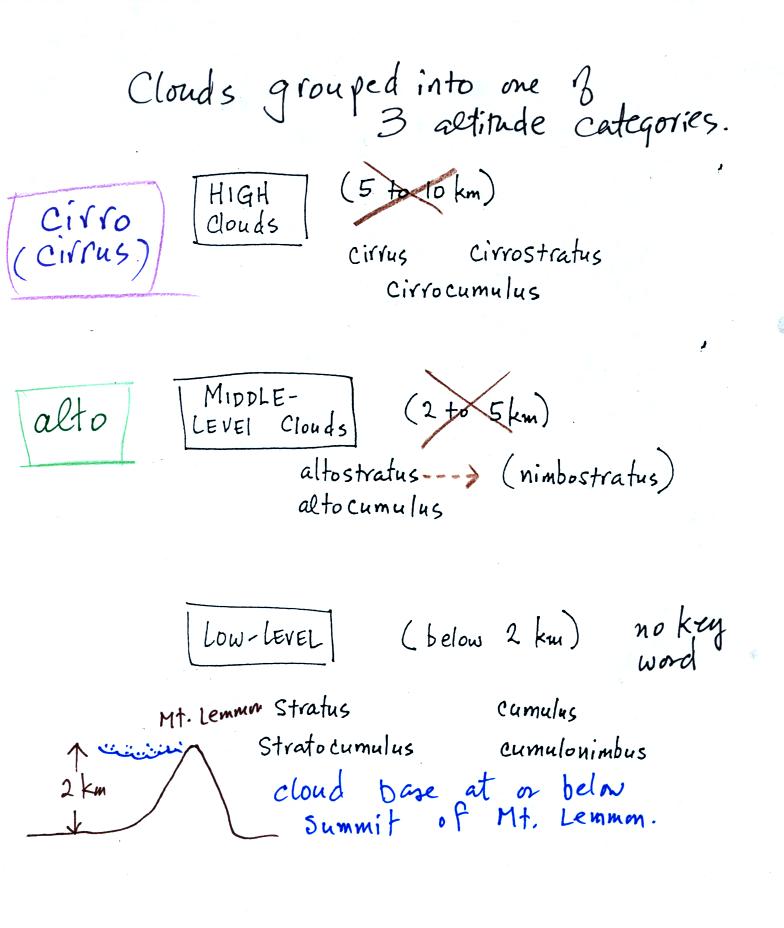 Clouds grouped into one of
3 altitude categories.
cirro
(cirrus)
HIGH
clouds
(5 to 10 km)
cirrus cirrostratus
cirrocumulus
alto
MIDDLE-
LEVEL clouds
(2 to 5 km)
altostratus ----> (nimbostratus)
altocumulus
LOW-LEVEL
(below 2 km)
no key
word
Mt. Lemmon
Stratus cumulus
Stratocumulus cumulonimbus
2 km
cloud base at or below
summit of Mt. Lemmon.